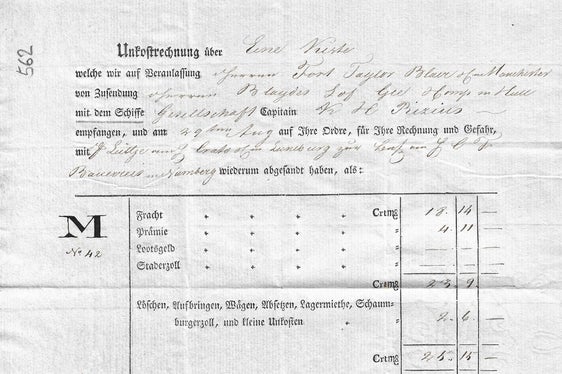 562
Unkostrechnung über Eine Kiste
welche wir auf Veranlassung Herren Fort Taylor Manchester
von Zusendung Herren Blaydes & Comp in Hull
mit dem Schiffe Gesellschaft Capitain K H
empfangen, und am 29ten Aug auf Ihre Ordre, für Ihre Rechnung und Gefahr,
mit J Lüneburg zur
wiederum abgesandt haben, als:
M
No 42
Fracht " " " " Crtm₰ 18 14 —
Prämie " " " " " 4 11 —
Lootsgeld " " " " — — —
Staderzoll " " " " — — —
Crtm₰ 23 9 —
Löschen, Aufbringen, Wägen, Absetzen, Lagermiethe, Schaum-
burgerzoll, und kleine Unkosten " " 2 6 —
Crtm₰ 25 15 —